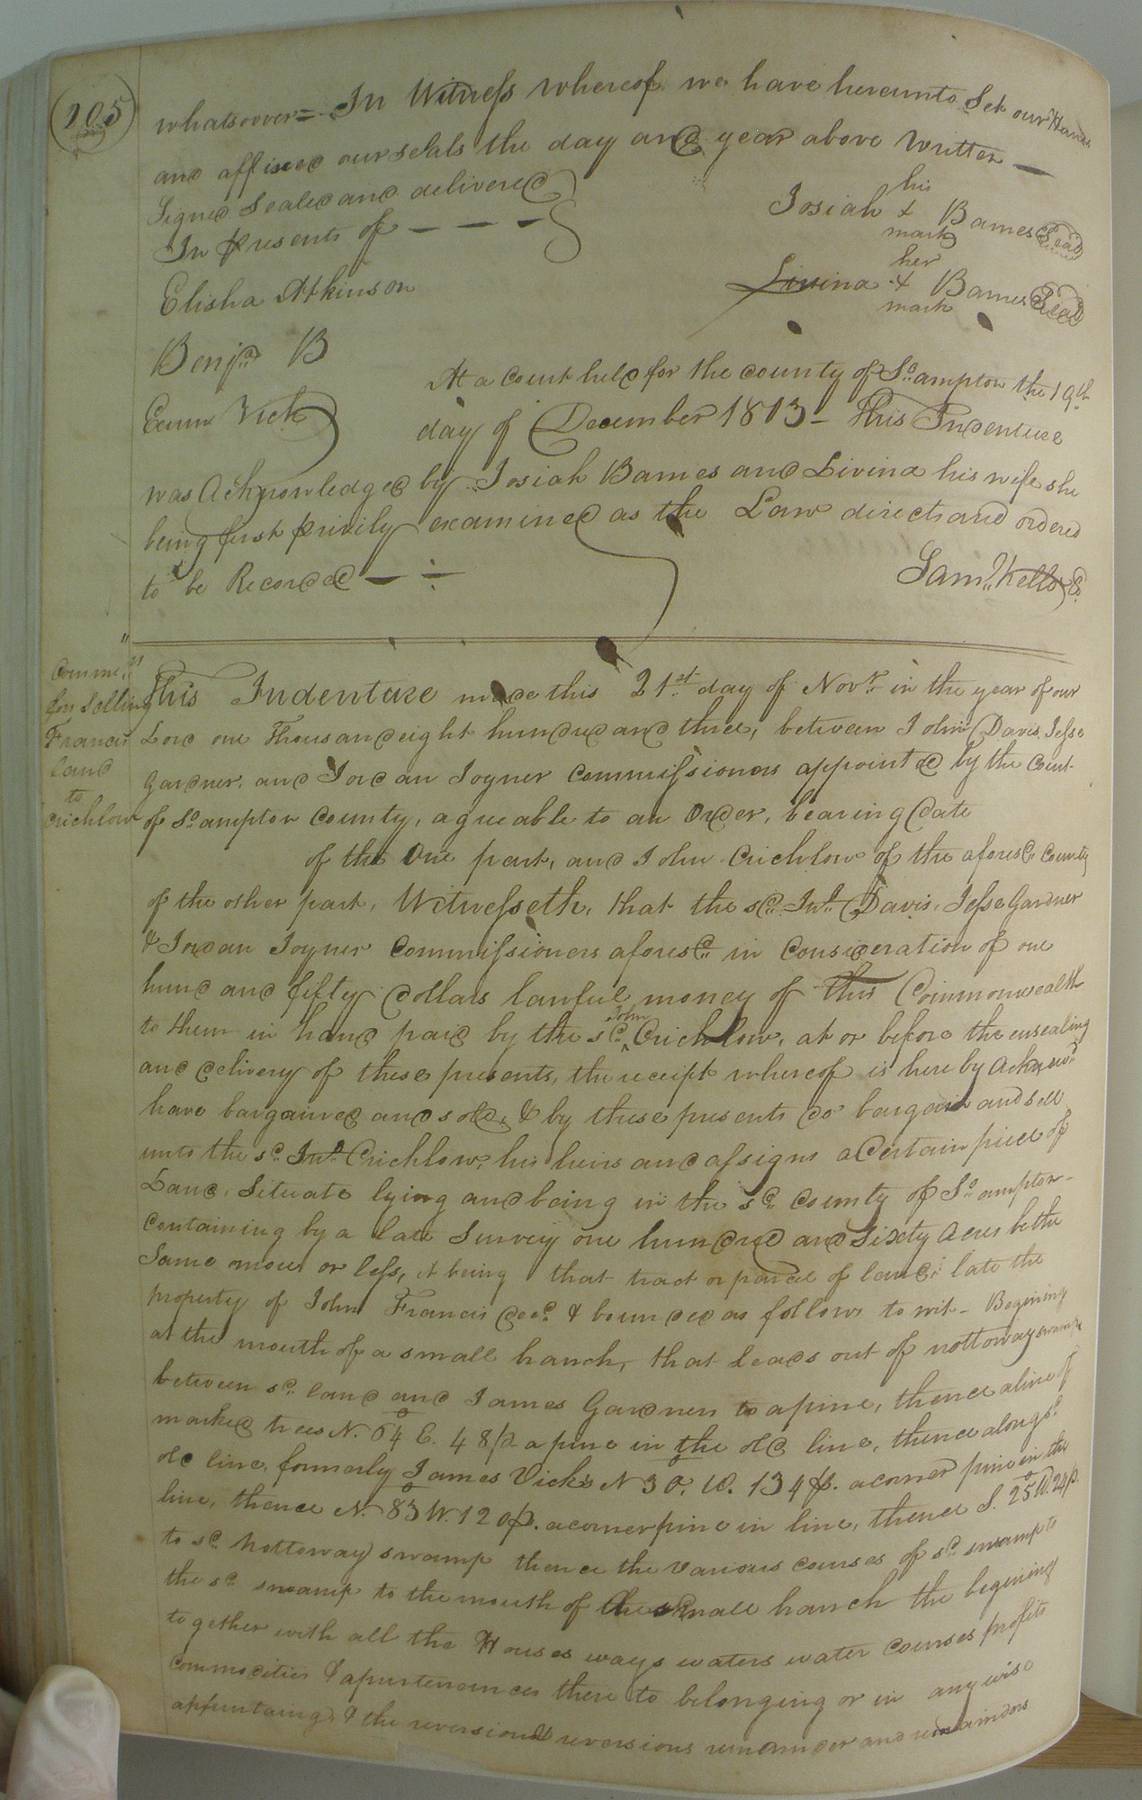 205
whatsoever = In Witness whereof we have hereunto Set our Hands
and affixed our seals the day and year above Written —
Signed Sealed and delivered
In presents of — — —
his
Josiah + Barnes Seal
mark
her
Livina + Barnes Seal
mark
Elisha Atkinson
Benjn B
Vick
At a Court held for the county of So ampton the 19th
day of December 1813 – This Indenture
was Acknowledged by Josiah Barnes and Livina his wife she
being first privily examined as the Law directs and ordered
to be Recorded —
Saml Kello Cc
Comms
for Selling
Francis
land
to
Crichlow
This Indenture made this 21st day of Novr in the year of our
Lord one Thousand eight hundred and three, between John Davis, Jesse
Gardner, and Jordan Joyner Commissioners appointed by the Court
of So ampton County, agreeable to an Order, bearing Date
of the One part, and John Crichlow of the aforesd County
of the other part, Witnesseth, that the sd Jno Davis, Jesse Gardner
& Jordan Joyner Commissioners aforesd in Consideration of one
hund and fifty dollars lawful money of this Commonwealth
to them in hand paid by the sd John Crichlow, at or before the ensealing
and delivery of these presents, the receipt whereof is here by Acknowd
have bargained and sold, & by these presents do bargain and sell
unto the sd Jno Crichlow, his heirs and assigns a Certain piece of
Land, Situate lying and being in the sd County of So ampton
Containing by a late Survey one hundred and Sixty Acres be the
Same more or less, it being that tract or parcel of land, late the
property of John Francis decd & bounded as follows to wit – Begining
at the mouth of a small branch, that leads out of nottoway swamp
between sd land and James Gardners to a pine, thence a line of
marked trees N. 64 E. 48 p. a pine in the old line, thence along sd
old line, formerly James Vicks N 30, W. 134 p. a corner pine in the
line, thence N. 83 W. 120 p. a corner pine in line, thence S. 25 W. 24 p.
to sd Nottoway swamp thence the various courses of sd swamp to
the sd swamp to the mouth of the small branch the begining
together with all the Houses ways waters water courses profits
commodities & apurtenances there to belonging or in any wise
appurtaining, & the reversion & reversions remainder and remainders